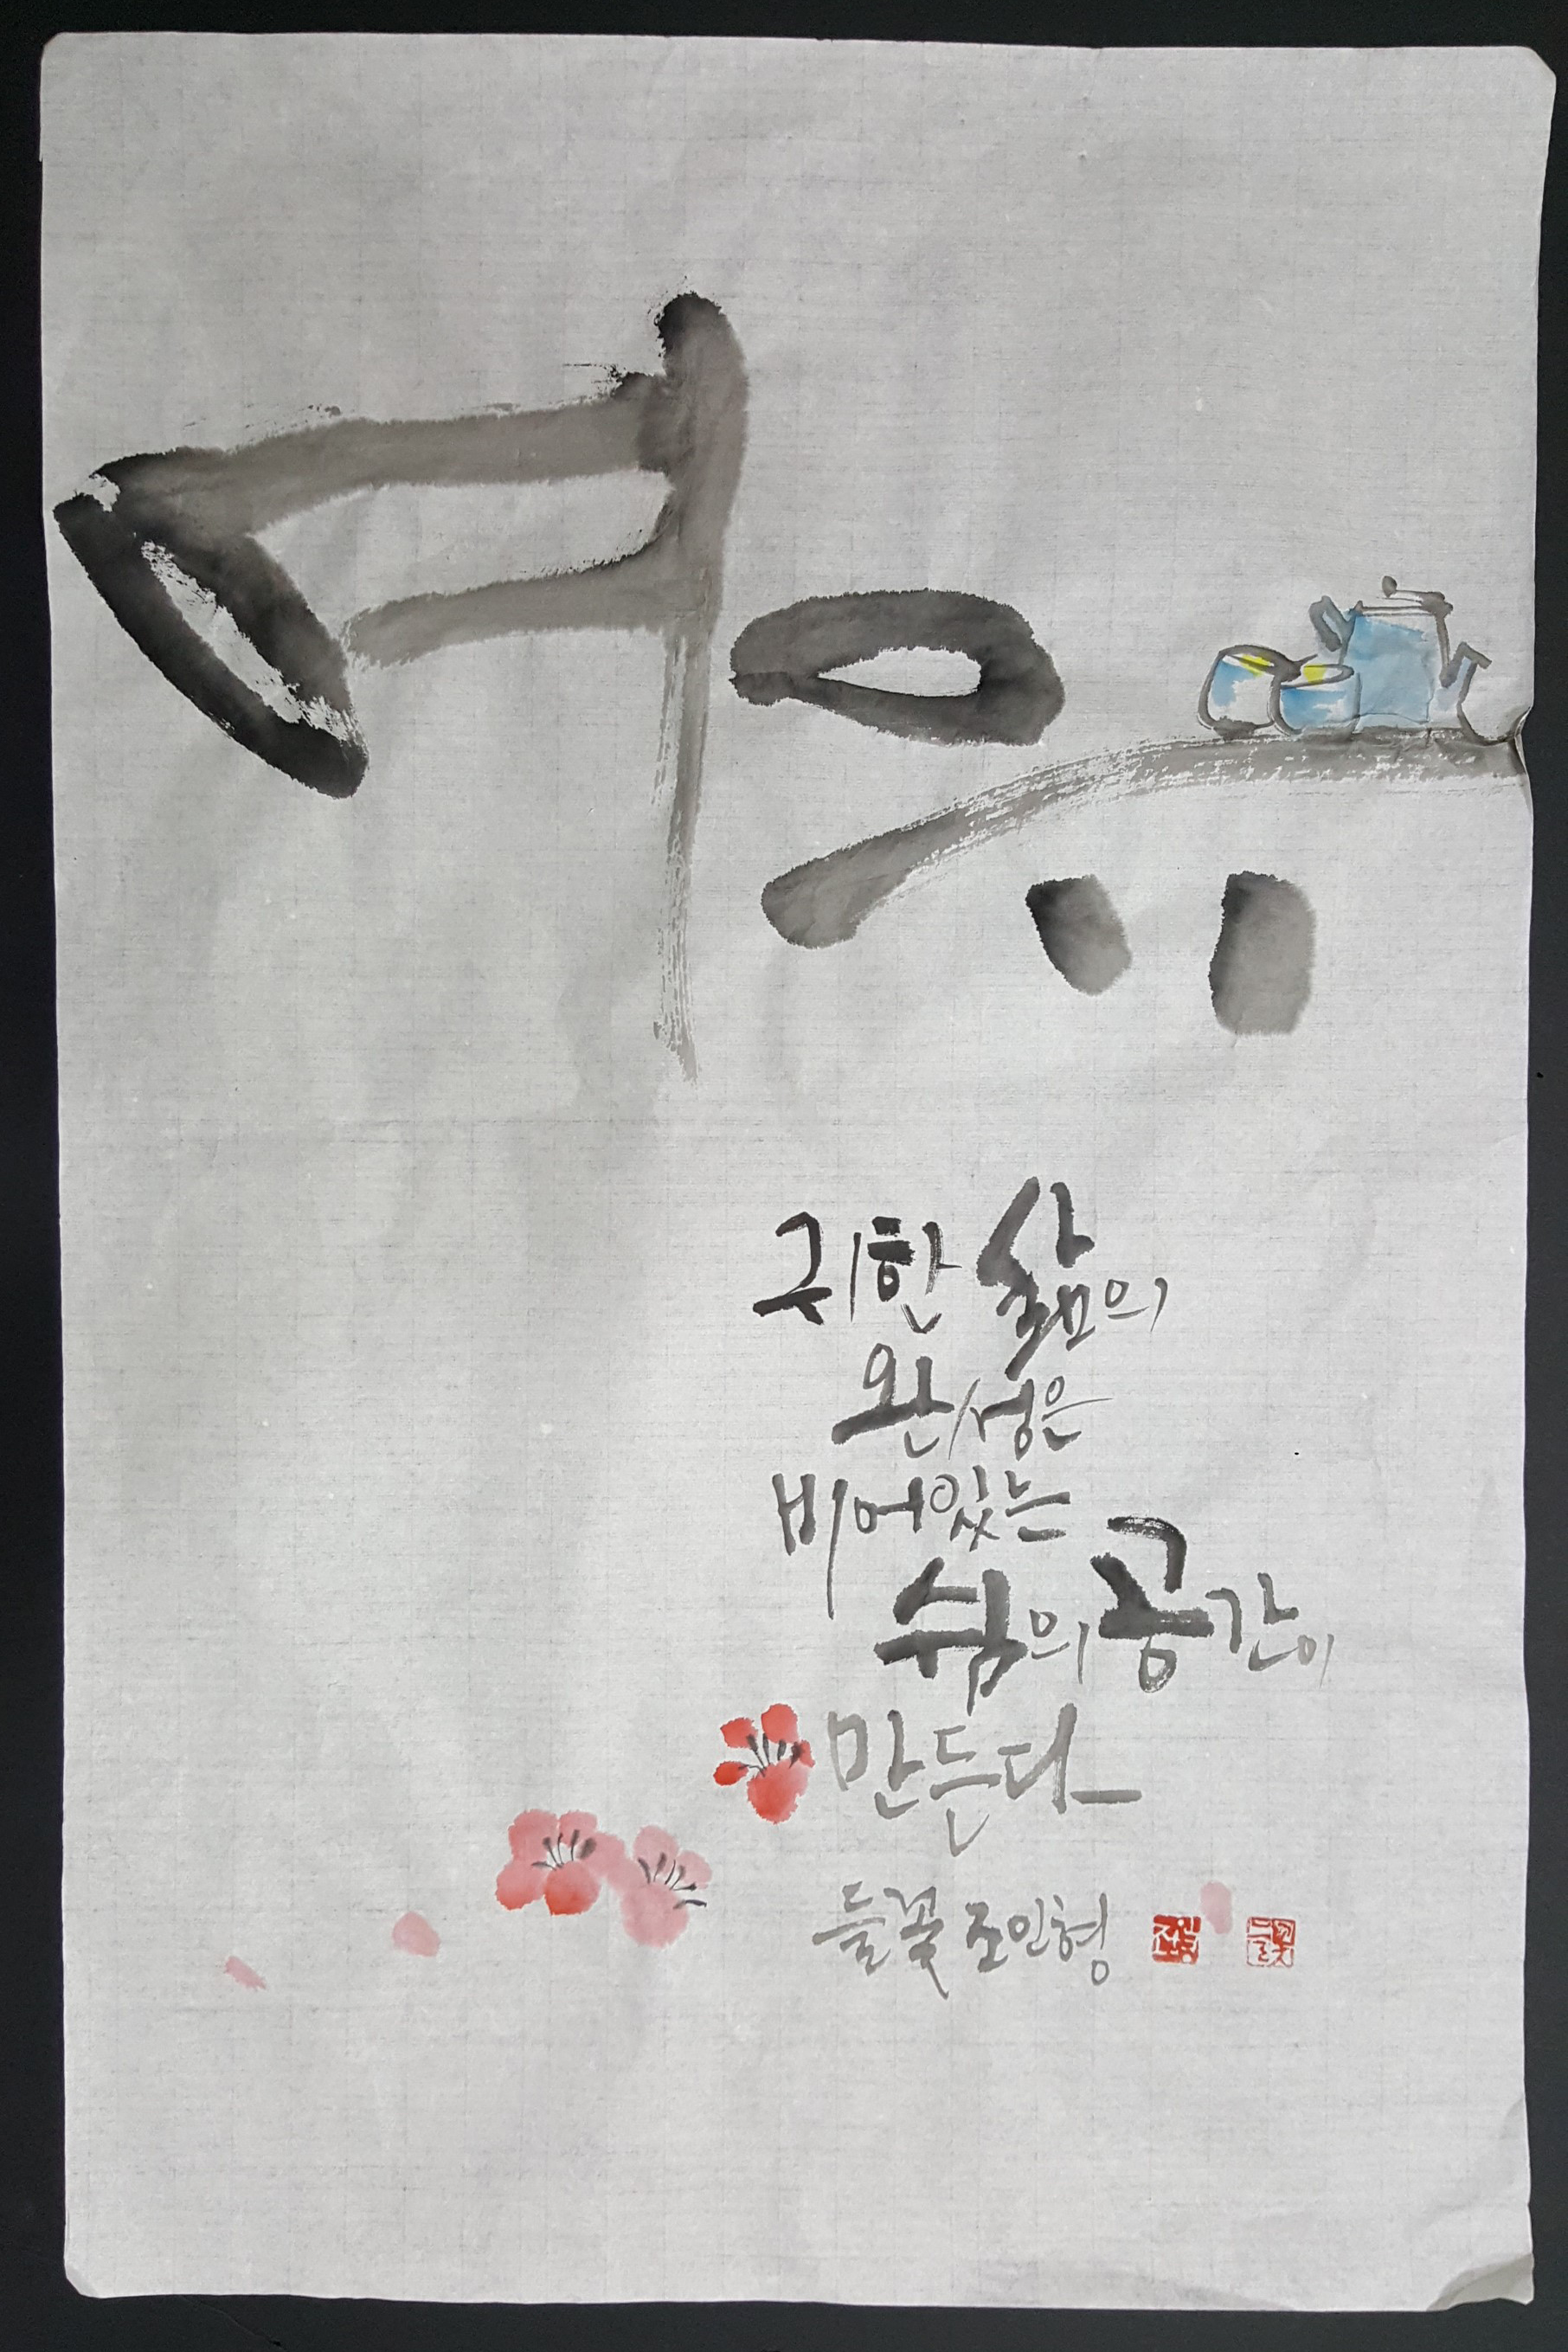 여유
귀한 삶의
완성은
비어있는
쉼의 공간이
만든다
들꽃 조인형
들꽃